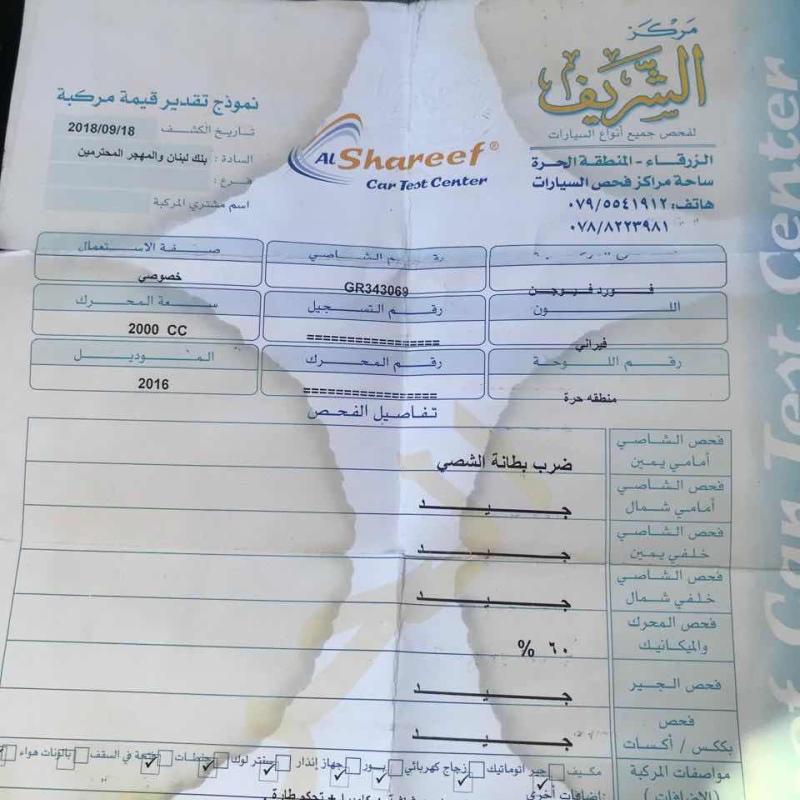 مركز
الشريف
لفحص جميع أنواع السيارات
الزرقاء - المنطقة الحرة
ساحة مراكز فحص السيارات
هاتف: ٠٧٩/٥٥٤١٩١٢
٠٧٨/٨٢٢٣٩٨١
AL Shareef ®
Car Test Center
نموذج تقدير قيمة مركبة
تاريخ الكشف : 2018/09/18
السادة : بنك لبنان والمهجر المحترمين
فرع :
اسم مشتري المركبة
فورد فيوجن
رقم الشاصي
GR343069
صفة الاستعمال
خصوصي
اللون
فيراني
رقم التسجيل
=================
سعة المحرك
2000 CC
رقم اللوحة
منطقه حرة
رقم المحرك
=================
الموديل
2016
تفاصيل الفحص
فحص الشاصي
أمامي يمين
ضرب بطانة الشصي
فحص الشاصي
أمامي شمال
جيد
فحص الشاصي
خلفي يمين
جيد
فحص الشاصي
خلفي شمال
جيد
فحص المحرك
والميكانيك
٦٠ %
فحص الجير
جيد
فحص
بككس / أكسات
جيد
مواصفات المركبة
(الإضافات)
مكيف جير اتوماتيك زجاج كهربائي بور جهاز إنذار سنتر لوك جنطات فتحة في السقف بالونات هواء
إضافات أخرى
of Car Test Center